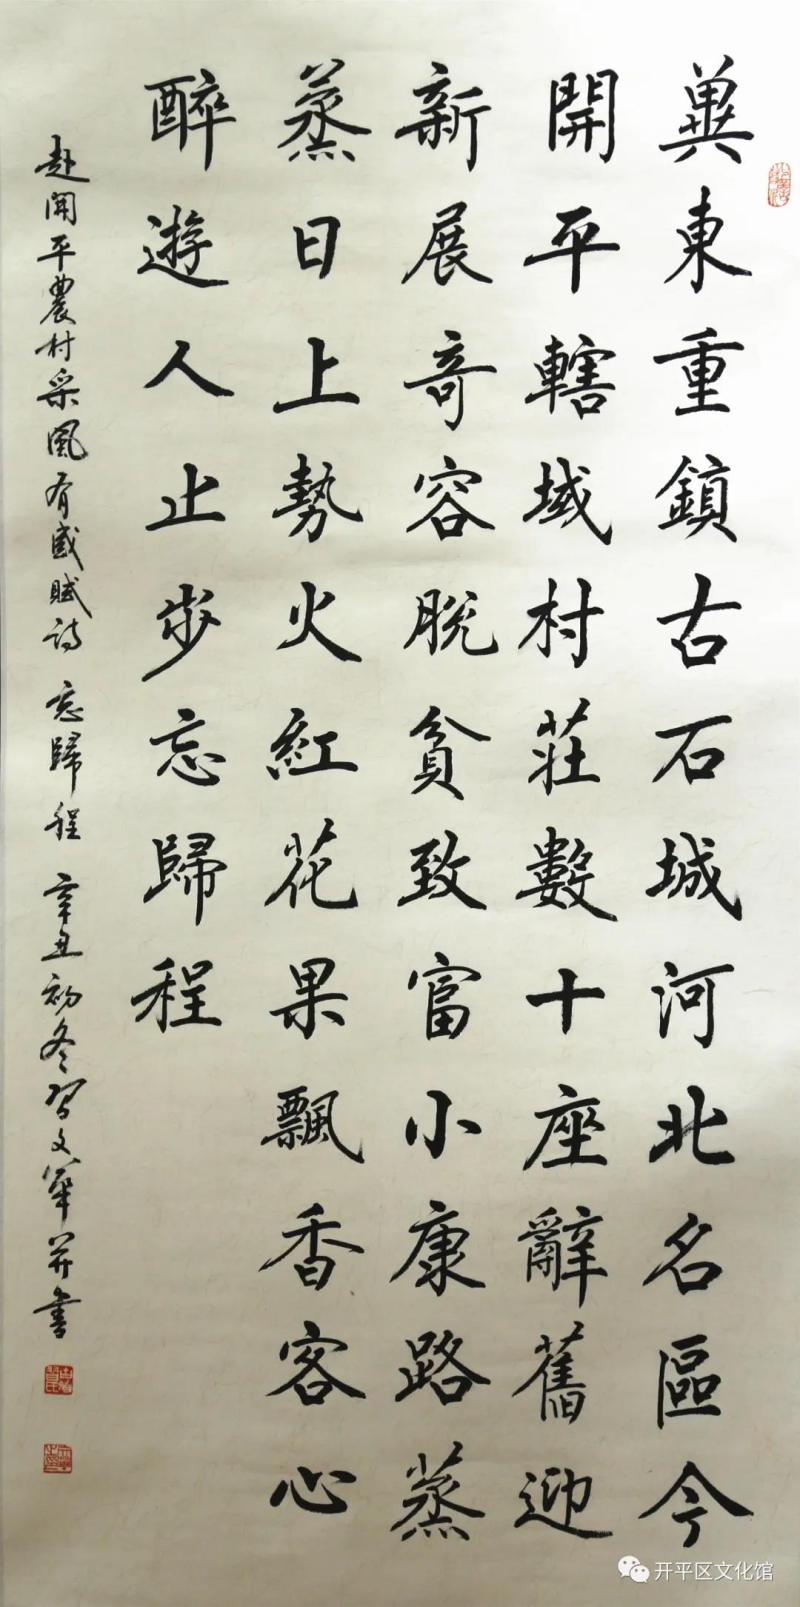 冀東重鎮古石城河北名區今
開平轄域村莊數十座辭舊迎
新展奇容脫貧致富小康路蒸
蒸日上勢火紅花果飄香客心
醉遊人止步忘歸程
赴開平農村采風有感賦詩 忘歸程 辛丑初冬 文華并書
开平区文化馆